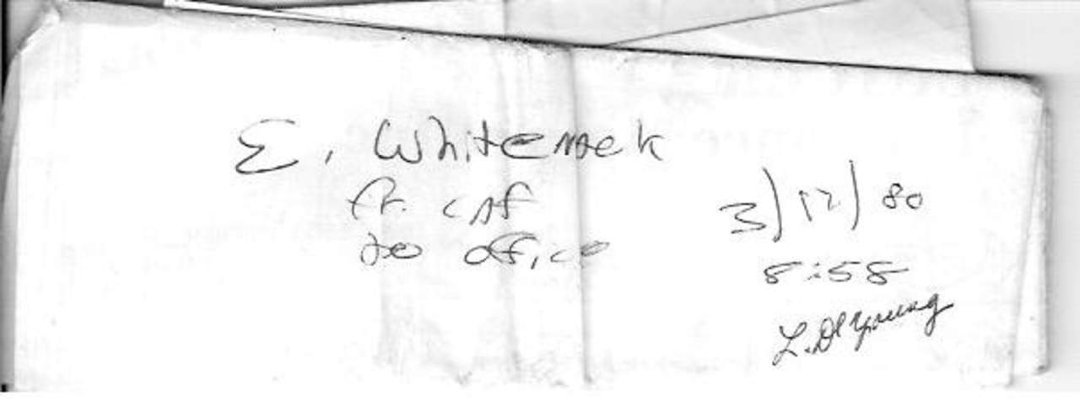 E. Whiteneck
fr. caf
to office
3/12/80
8:58
L. DeYoung